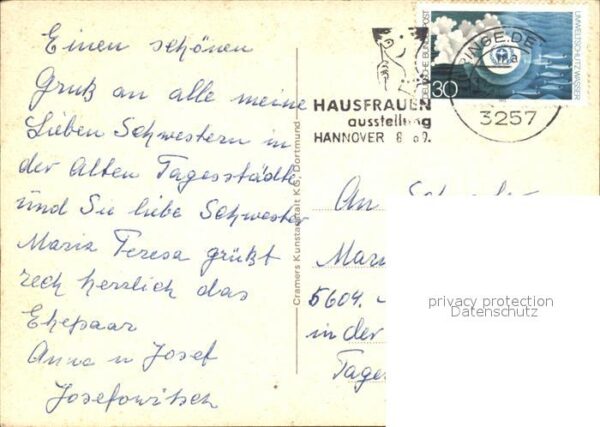 Einen schönen
Gruß an alle meine
Lieben Schwestern in
der Alten Tagesstädte
und Sie liebe Schwester
Maria Teresa grüßt
rech herzlich das
Ehepaar
Anna u Josef
Josefowitsch
Cramers Kunstanstalt KG, Dortmund
HAUSFRAUEN
ausstellung
HANNOVER 8
3257
30
DEUTSCHE BUNDESPOST
UMWELTSCHUTZ WASSER
An
5604
in der
privacy protection
Datenschutz